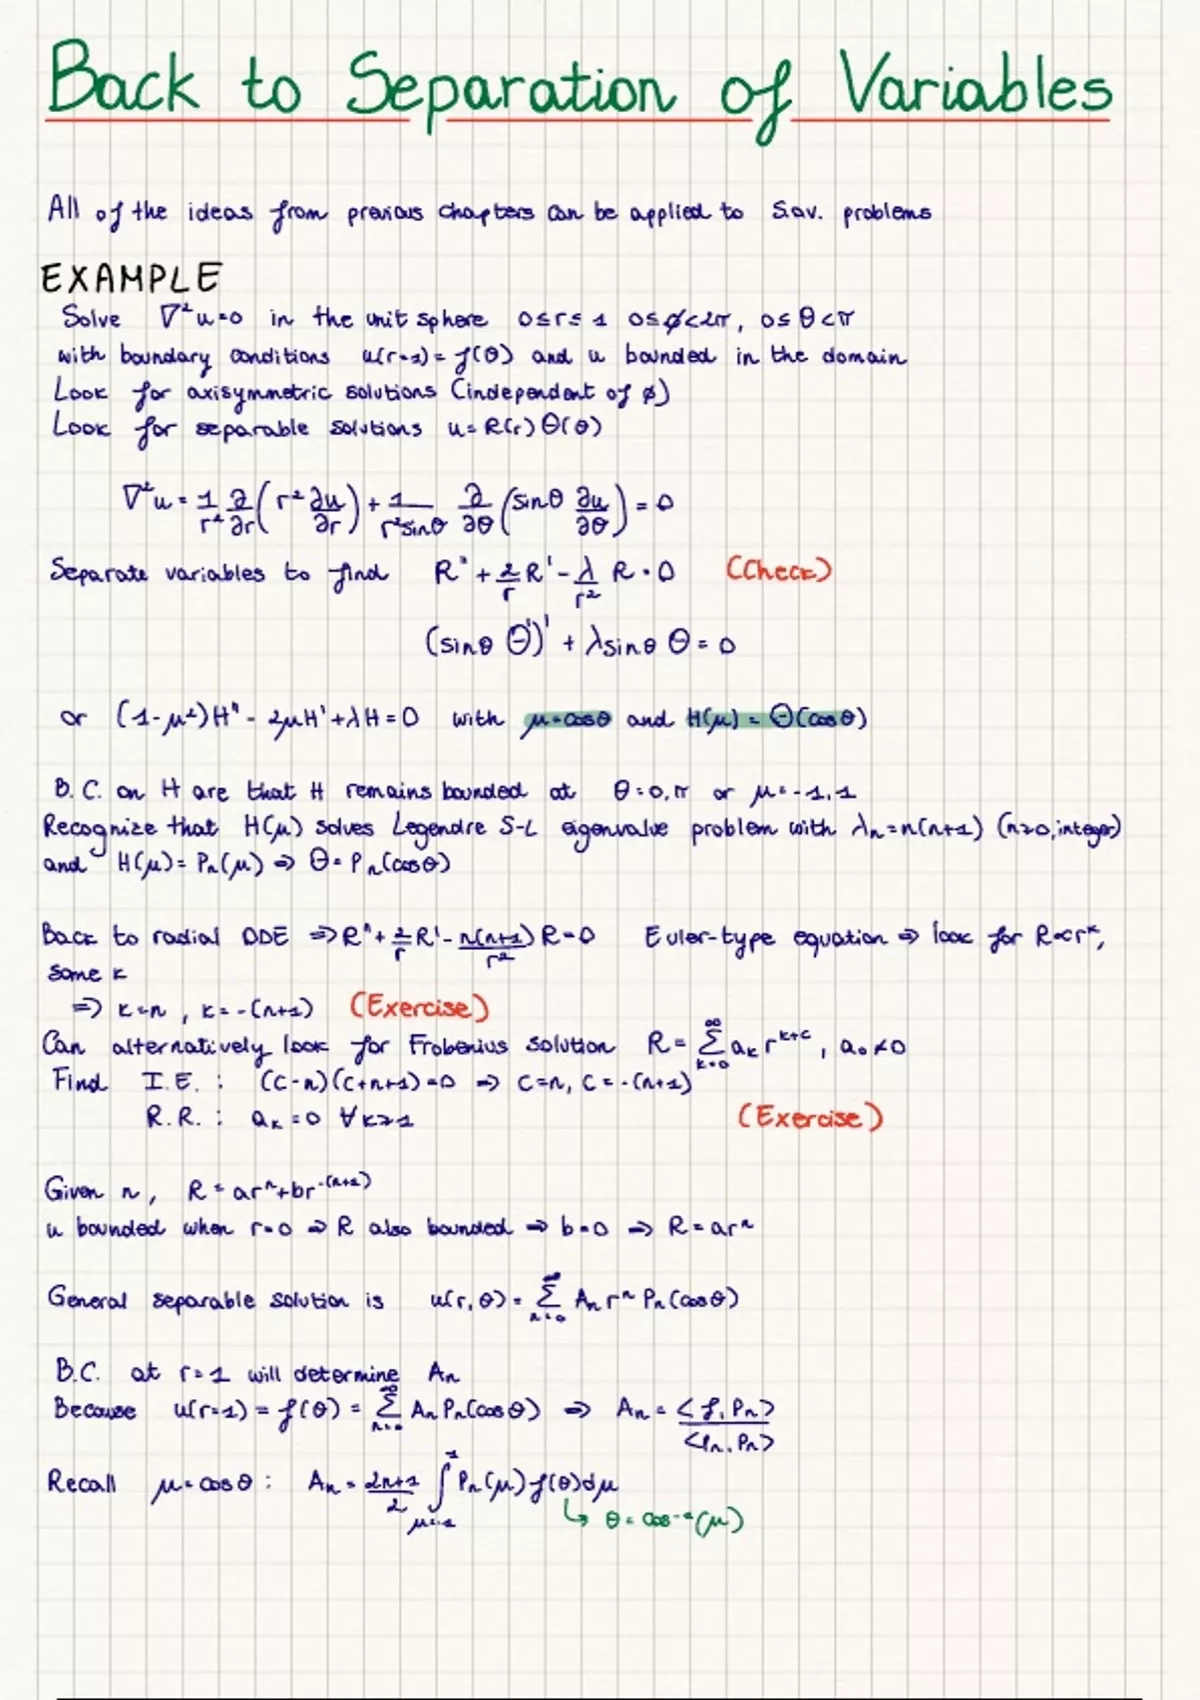 Back to Separation of Variables
All of the ideas from previous chapters can be applied to S.o.v. problems
EXAMPLE
Solve ∇²u=0 in the unit sphere 0≤r≤1 0≤ø<2π, 0≤θ<π
with boundary conditions u(r=1)=f(θ) and u bounded in the domain
Look for axisymmetric solutions (independent of ø)
Look for separable solutions u=R(r)Θ(θ)
∇²u = 1/r² ∂/∂r (r² ∂u/∂r) + 1/(r²sinθ) ∂/∂θ (sinθ ∂u/∂θ) = 0
Separate variables to find R" + 2/r R' - λ/r² R = 0 (Check)
(sinθ Θ')' + λsinθ Θ = 0
or (1-μ²)H" - 2μH' + λH = 0 with μ=cosθ and H(μ) = Θ(cosθ)
B.C. on H are that H remains bounded at θ=0,π or μ=-1,1
Recognize that H(μ) solves Legendre S-L eigenvalue problem with λₙ=n(n+1) (n≥0,integer)
and H(μ)=Pₙ(μ) ⇒ Θ=Pₙ(cosθ)
Back to radial ODE ⇒ R" + 2/r R' - n(n+1)/r² R = 0 Euler-type equation ⇒ look for R∝r^k,
some k
⇒ k=n, k=-(n+1) (Exercise)
Can alternatively look for Frobenius solution R = ∑_{k=0}^∞ a_k r^{k+c}, a₀≠0
Find I.E. : (c-n)(c+n+1)=0 ⇒ c=n, c=-(n+1)
R.R. : a_k=0 ∀k≥1 (Exercise)
Given n, R = arⁿ+br^{-(n+1)}
u bounded when r=0 ⇒ R also bounded ⇒ b=0 ⇒ R=arⁿ
General separable solution is u(r,θ) = ∑_{n=0}^∞ Aₙ rⁿ Pₙ(cosθ)
B.C. at r=1 will determine Aₙ
Because u(r=1) = f(θ) = ∑_{n=0}^∞ Aₙ Pₙ(cosθ) ⇒ Aₙ = <f,Pₙ>/<Pₙ,Pₙ>
Recall μ=cosθ : Aₙ = (2n+1)/2 ∫_{μ=-1}^1 Pₙ(μ) f(θ)dμ
↳ θ = cos⁻¹(μ)